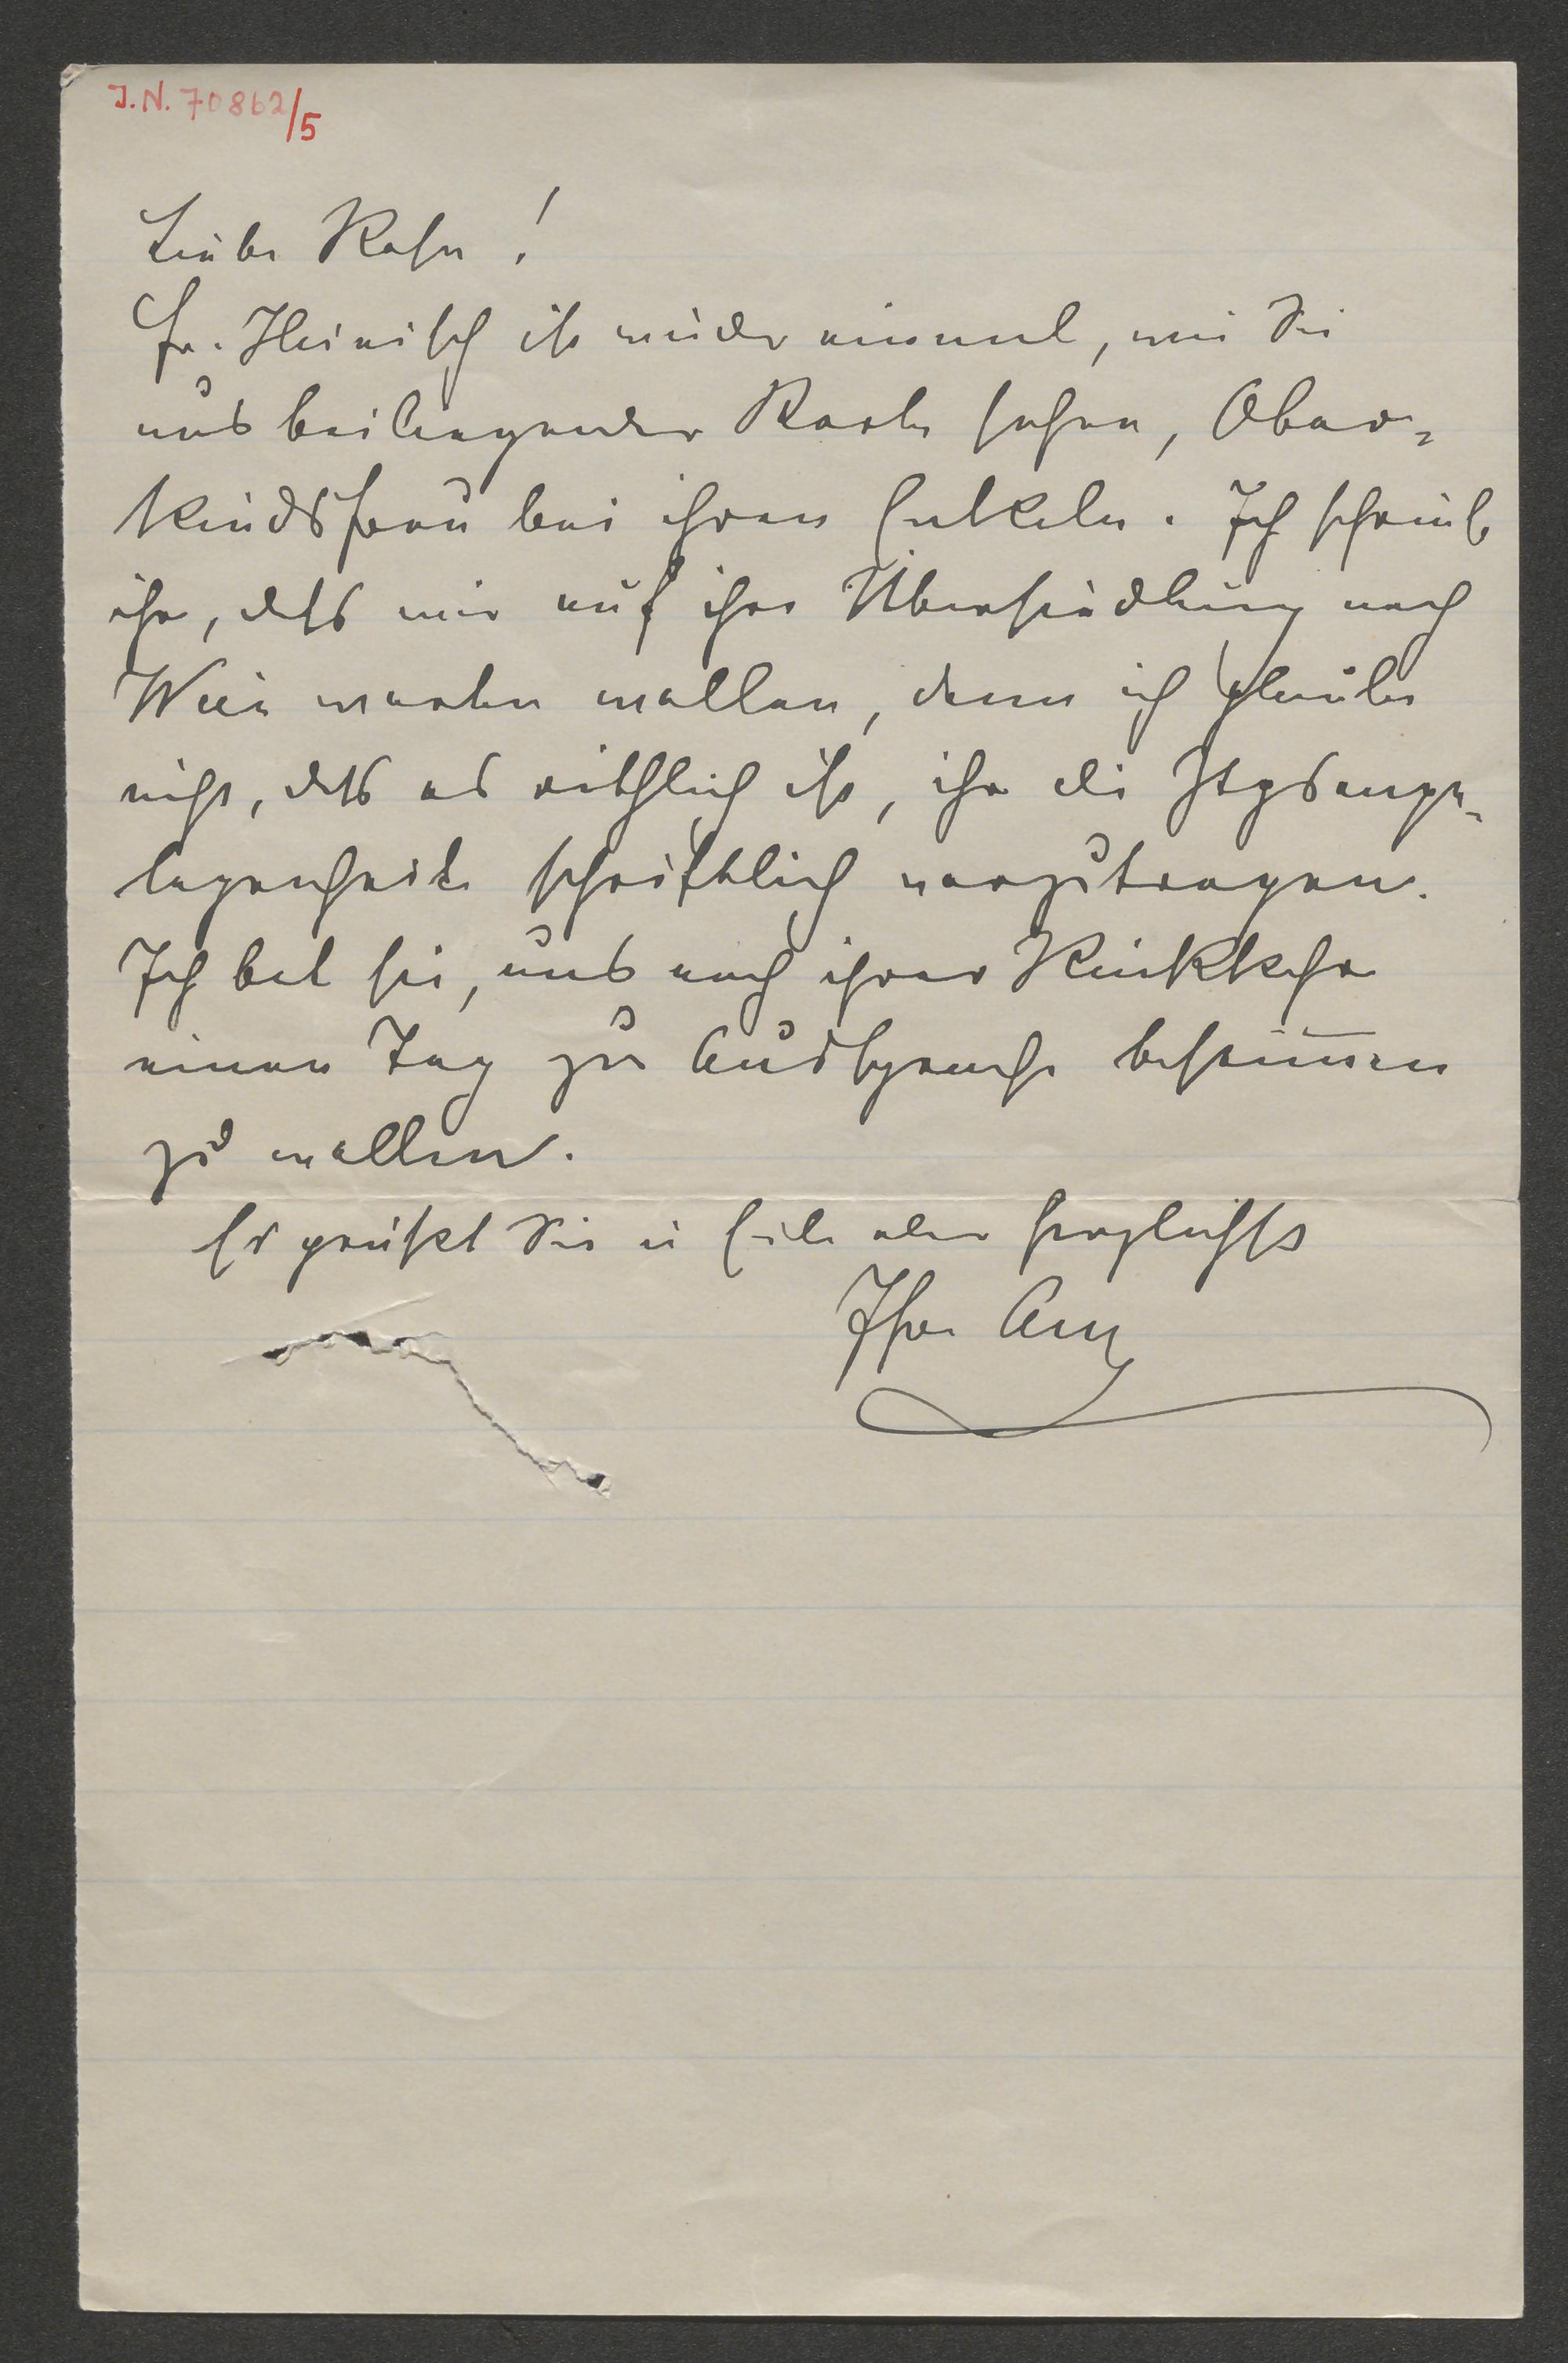 J.N. 70862/5
Liebe Rosa!
Fr. Hainisch ist wieder einmal, wie Sie
aus beiliegender Karte sehen, Ober-
kindsfrau bei ihren Enkeln. Ich schrieb
ihr, dass wir auf ihre Übersiedlung nach
Wien warten wollen, denn ich glaube
nicht, dass es räthlich ist, ihr die Ange-
legenheit schriftlich vorzutragen.
Ich bat sie, uns nach ihrer Rückkehr
einen Tag zur Aussprache bestim̅en
zu wollen.
Es grüßt Sie in Eile aber herzlichst
Ihre Aug